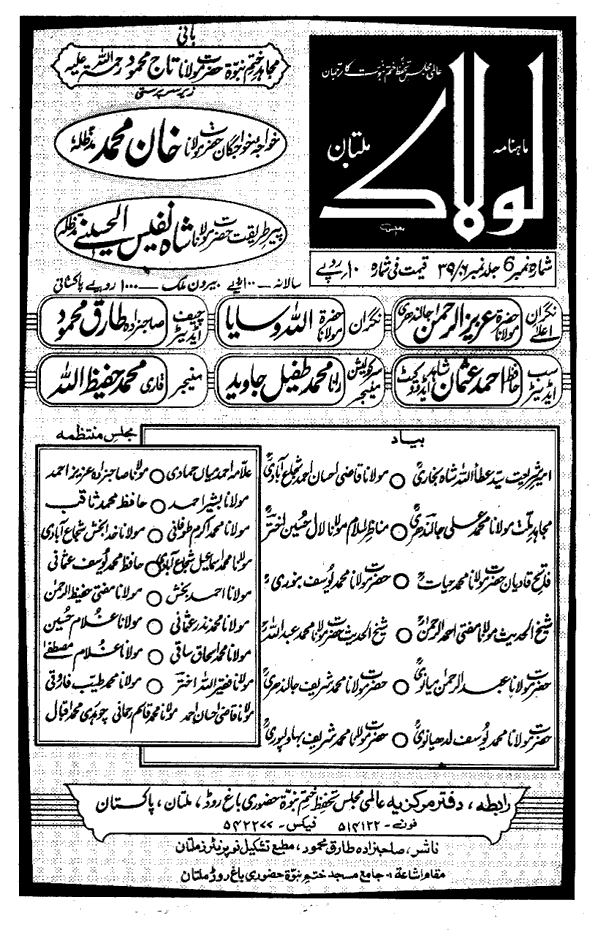 بانی
مجاہد ختم نبوۃ حضرت مولانا تاج محمود رحمۃ اللہ علیہ
زیر سرپرستی
خواجۂ خواجگان حضرت مولانا خان محمد مدظلہٗ
پیر طریقت حضرت مولانا شاہ نفیس الحسینی مدظلہٗ
عالمی مجلس تحفظ ختم نبوت کا ترجمان
ماہنامہ
لولاک
ملتان
شمارہ نمبر 6 جلد نمبر ۳۹/۶ قیمت فی شمارہ ۱۰ روپے
سالانہ — ۱۰۰ روپے بیرون ملک — ۱۰۰۰ روپے پاکستانی
نگران اعلیٰ حضرۃ مولانا عزیز الرحمٰن جالندھری
نگران حضرۃ مولانا اللہ وسایا
چیف ایڈیٹر صاحبزادہ طارق محمود
سب ایڈیٹر حافظ احمد عثمان شاہد ایڈووکیٹ
سرکولیشن منیجر رانا محمد طفیل جاوید
منیجر قاری محمد حفیظ اللہ
بیاد
امیر شریعت سید عطاء اللہ شاہ بخاریؒ ○ مولانا قاضی احسان احمد شجاع آبادیؒ
مجاہد ملت مولانا محمد علی جالندھریؒ ○ مناظر اسلام مولانا لال حسین اخترؒ
فاتح قادیان حضرت مولانا محمد حیاتؒ ○ حضرت مولانا محمد یوسف بنوریؒ
شیخ الحدیث مولانا مفتی احمد الرحمٰنؒ ○ شیخ الحدیث حضرت مولانا محمد عبداللہؒ
حضرت مولانا عبد الرحمٰن میانویؒ ○ حضرت مولانا محمد شریف جالندھریؒ
حضرت مولانا محمد یوسف لدھیانویؒ ○ حضرت مولانا محمد شریف بہاولپوریؒ
مجلس منتظمہ
علامہ احمد میاں حمادی ○ مولانا صاحبزادہ عزیز احمد
مولانا بشیر احمد ○ حافظ محمد ثاقب
مولانا محمد اکرم طوفانی ○ مولانا خدا بخش شجاع آبادی
مولانا محمد اسماعیل شجاع آبادی ○ حافظ محمد یوسف عثمانی
مولانا احمد بخش ○ مولانا مفتی حفیظ الرحمٰن
مولانا محمد نذر عثمانی ○ مولانا غلام حسین
مولانا محمد اسحاق ساقی ○ مولانا غلام مصطفیٰ
مولانا فقیر اللہ اختر ○ مولانا محمد طیب فاروقی
مولانا قاضی احسان احمد مولانا محمد قاسم رحمانی چوہدری محمد اقبال
رابطہ، دفتر مرکزیہ عالمی مجلس تحفظ ختم نبوۃ حضوری باغ روڈ، ملتان، پاکستان
فون - ۵۱۴۱۲۲ فیکس - ۵۴۲۲۷۷
ناشر، صاحبزادہ طارق محمود، مطبع تشکیل نو پرنٹرز ملتان
مقام اشاعۃ، جامع مسجد ختم نبوۃ حضوری باغ روڈ ملتان